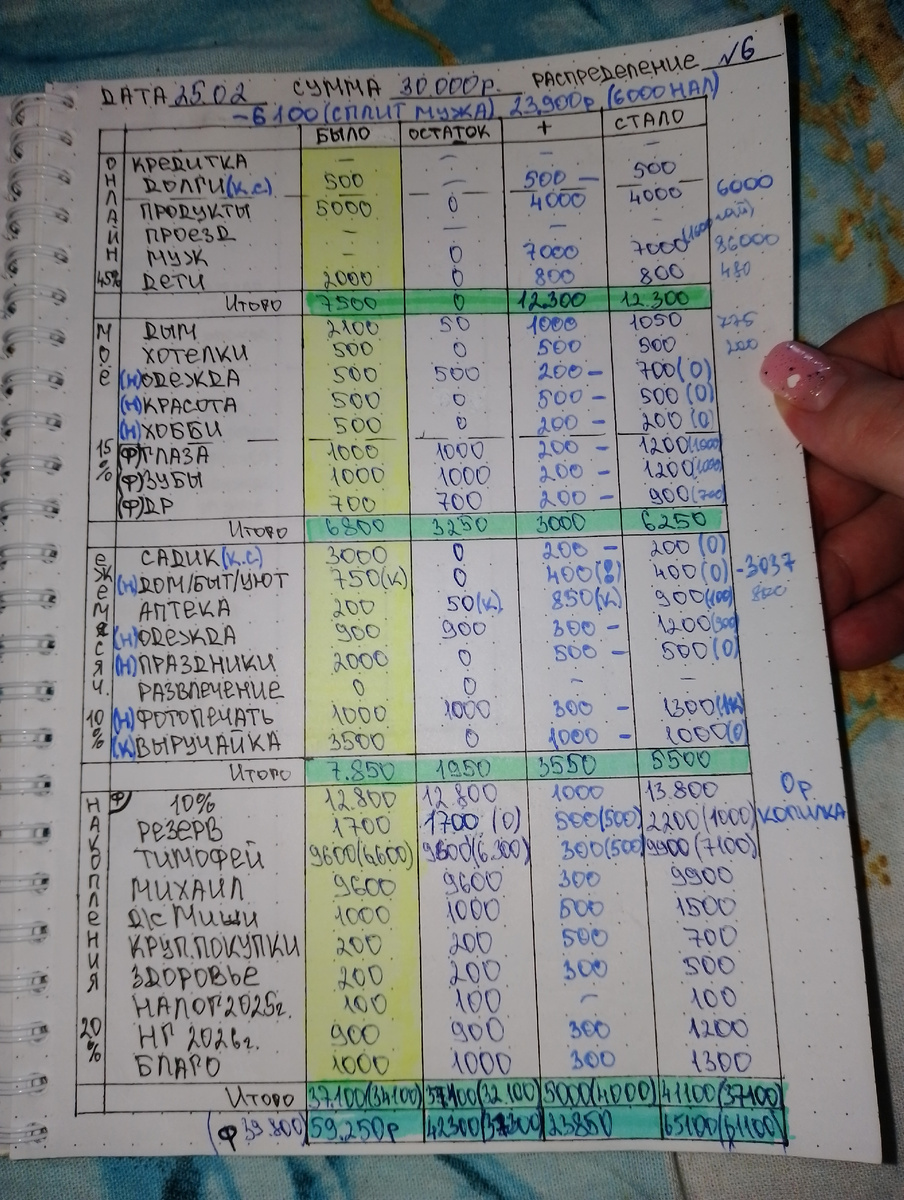 ДАТА 25.02 СУММА 30.000р. РАСПРЕДЕЛЕНИЕ √6
-6100 (СПЛИТ МУЖА) 23,900р (6000 НАЛ)
БЫЛО ОСТАТОК + СТАЛО
ОНЛАЙН 45%
КРЕДИТКА – – – –
ДОЛГИ (К.С) 500 – 500 – 500
ПРОДУКТЫ 5000 0 4000 4000 6000
ПРОЕЗД – – – –
МУЖ – 0 7000 7000 36000
ДЕТИ 2000 0 800 800 480
Итого 7500 0 12.300 12.300
МОЕ 15%
ДЫМ 2100 50 1000 1050 775
ХОТЕЛКИ 500 0 500 500 200
(Н) ОДЕЖДА 500 500 200 – 700 (0)
(Н) КРАСОТА 500 0 500 – 500 (0)
(Н) ХОББИ 500 0 200 – 200 (0)
(Ф) ГЛАЗА 1000 1000 200 – 1200 (1000)
(Ф) ЗУБЫ 1000 1000 200 – 1200 (1000)
(Ф) ДР 700 700 200 – 900 (700)
Итого 6800 3250 3000 6250
ЕЖЕМЕСЯЧ. 10%
САДИК (К.С) 3000 0 200 – 200 (0)
(Н) ДОМ/БЫТ/УЮТ 750 (К) 0 400 400 (0) -3037
АПТЕКА 200 50 (К) 850 (К) 900 (100)
(Н) ОДЕЖДА 900 900 300 – 1200
(Н) ПРАЗДНИКИ 2000 0 500 – 500 (0)
РАЗВЛЕЧЕНИЕ 0 0 – –
(Н) ФОТОПЕЧАТЬ 1000 1000 300 – 1300 (1К)
(К) ВЫРУЧАЙКА 3500 0 1000 – 1000 (0)
Итого 7.850 1950 3550 5500
НАКОПЛЕНИЯ 20%
Ф 10% 12.800 12.800 1000 13.800 0р
РЕЗЕРВ 1700 1700 (0) 500 (500) 2200 (1000) КОПИЛКА
ТИМОФЕЙ 9600 (6600) 9600 (6.300) 300 (500) 9900 (7100)
МИХАИЛ 9600 9600 300 9900
Д/С МИШИ 1000 1000 500 1500
КРУП. ПОКУПКИ 200 200 500 700
ЗДОРОВЬЕ 200 200 300 500
НАЛОГ 2025г. 100 100 – 100
НГ 2026г. 900 900 300 1200
БЛАГО 1000 1000 300 1300
Итого 37.100 (34100) 37100 (32.100) 5000 (4000) 41100 (37100)
(Ф 39.800) 59.250р 42300 23850 65100 (61100)